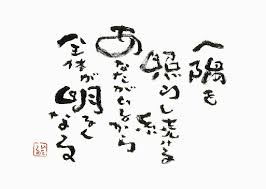 一隅を
照らし続ける
あなたがいるから
全体が
明るく
なる